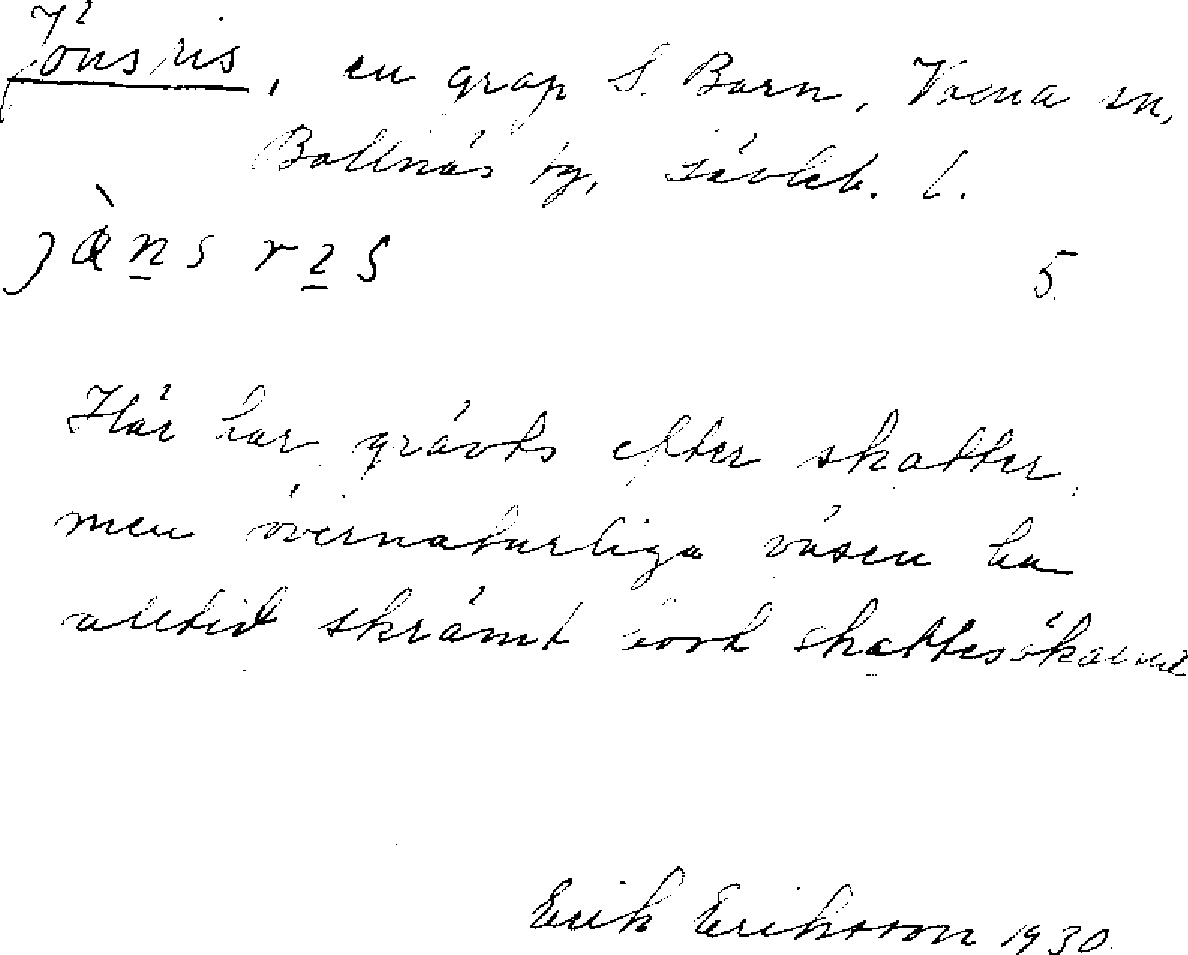 Jönsris, en grop S. Born, Voxna sn,
Bollnäs tg, Gävleb. l.
jœ̀ns ris
5.
Här har grävts efter skatter,
men övernaturliga väsen ha
alltid skrämt bort skattesökarne
Erik Eriksson 1930.